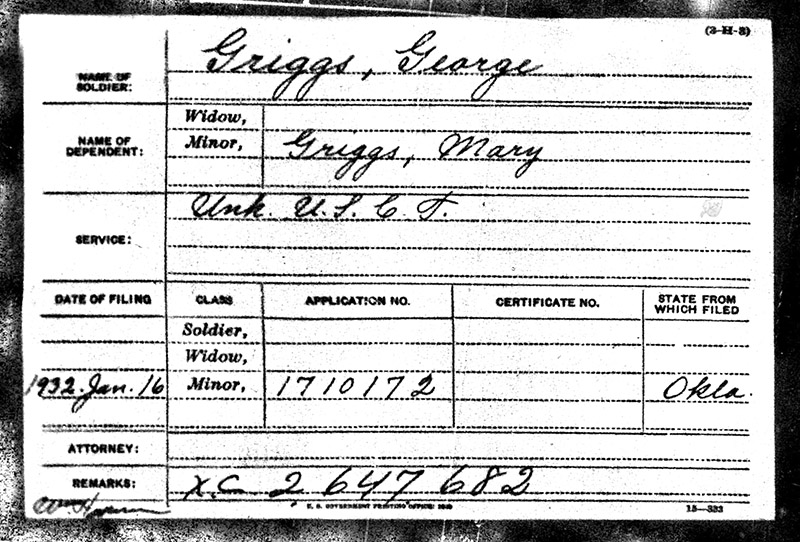 (3-H-3)
NAME OF SOLDIER: Griggs, George
NAME OF DEPENDENT:
Widow,
Minor, Griggs, Mary
SERVICE: Unk. U.S.C.T.
DATE OF FILING CLASS APPLICATION NO. CERTIFICATE NO. STATE FROM WHICH FILED
Soldier,
Widow,
1932. Jan. 16 Minor, 1710172 Okla.
ATTORNEY:
REMARKS: X.C 2 647 682
U. S. GOVERNMENT PRINTING OFFICE:
15—333